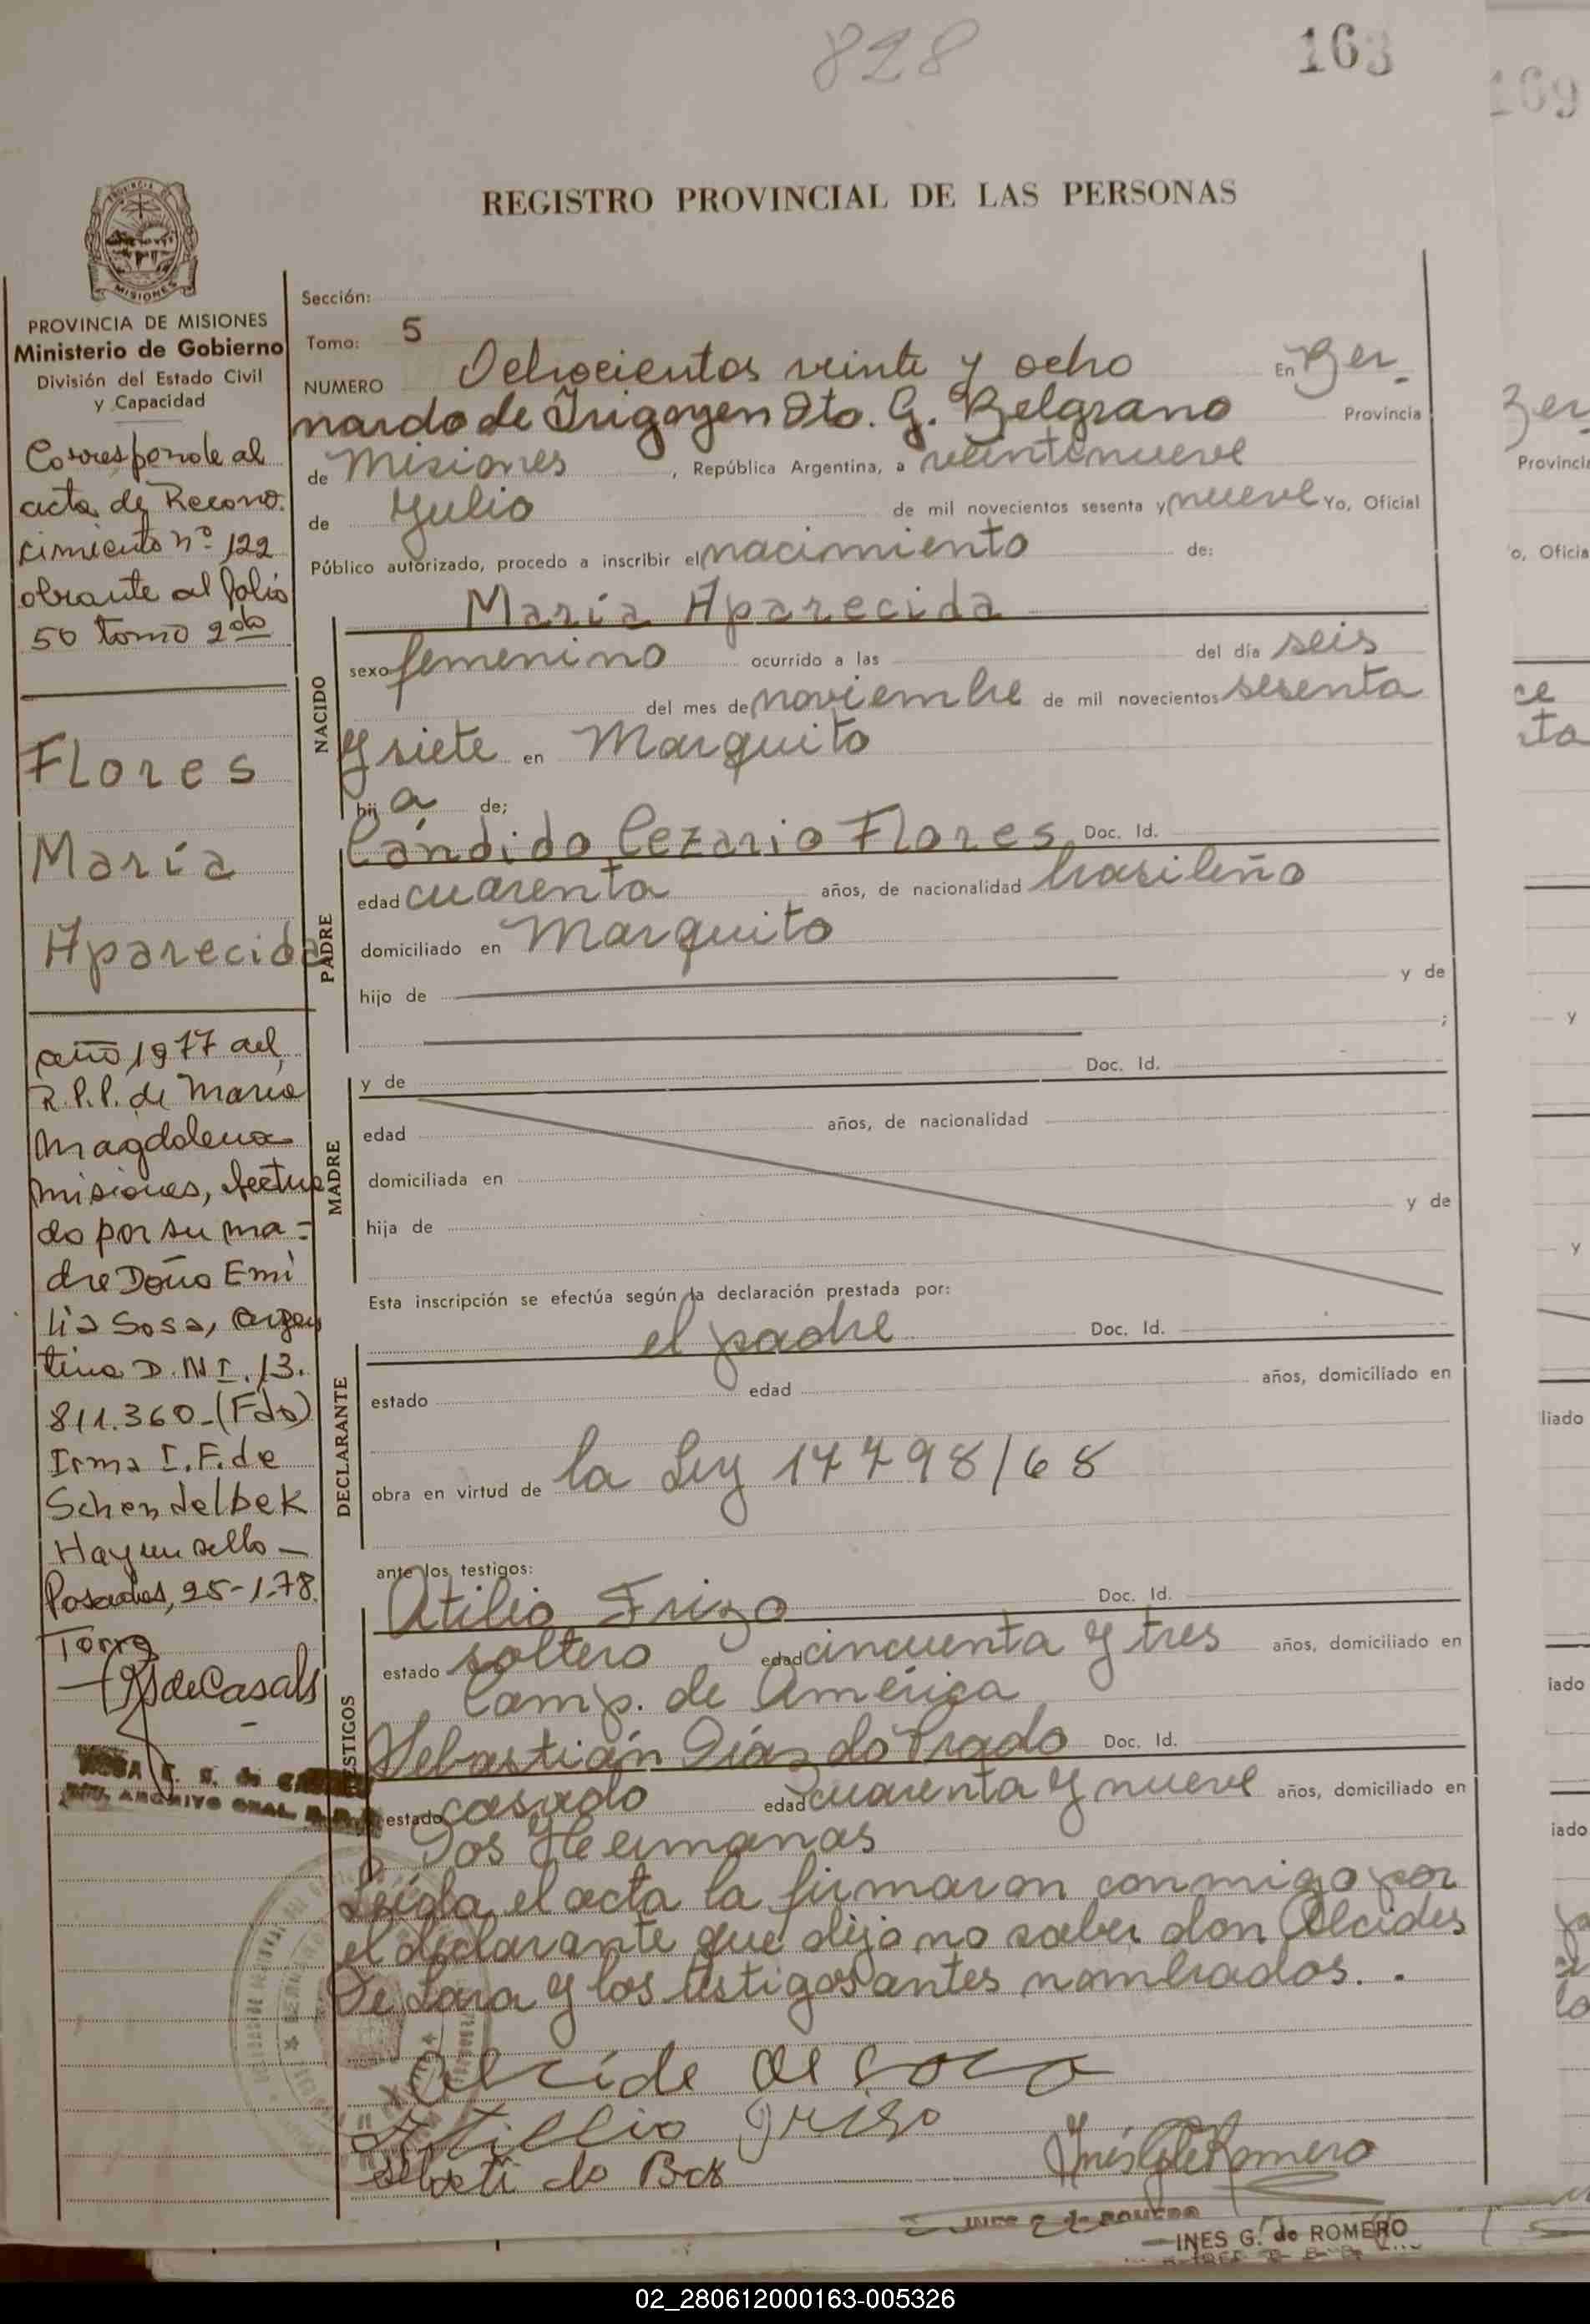 828
163
169
REGISTRO PROVINCIAL DE LAS PERSONAS
MISIONES
PROVINCIA DE MISIONES
Ministerio de Gobierno
División del Estado Civil
y Capacidad
Corresponde al
acta de Recono.
cimiento nº 122
obrante al folio
50 tomo 2do
Flores
María
Aparecida
año 1977 del
R.P.P. de María
Magdalena
Misiones, efectua
do por su ma-
dre Doña Emi
lia Sosa, Argen
tina D.N.I. 13.
811.360-(Fdo)
Irma I. F. de
Schendelbek
Hay un sello-
Posadas, 25-1-78.
Torre
de Casals
Sección:
Tomo: 5
NUMERO Ochocientos veinte y ocho En Ber-
nardo de Irigoyen Dto. G. Belgrano Provincia
de Misiones, República Argentina, a veintinueve
de Julio de mil novecientos sesenta y nueve Yo, Oficial
Público autorizado, procedo a inscribir el nacimiento de:
NACIDO
María Aparecida
sexo femenino ocurrido a las del día seis
del mes de noviembre de mil novecientos sesenta
y siete en Marquito
hij a de;
PADRE
Cándido Cezario Flores Doc. Id.
edad cuarenta años, de nacionalidad brasileño
domiciliado en Marquito
hijo de y de
;
MADRE
y de Doc. Id.
edad años, de nacionalidad
domiciliada en
hija de y de
Esta inscripción se efectúa según la declaración prestada por:
DECLARANTE
el padre Doc. Id.
estado edad años, domiciliado en
obra en virtud de la Ley 17798/68
ante los testigos:
TESTIGOS
Atilio Frizo Doc. Id.
estado soltero edad cincuenta y tres años, domiciliado en
Camp. de América
Sebastián Díaz do Prado Doc. Id.
estado casado edad cuarenta y nueve años, domiciliado en
Dos Hermanas
Leída el acta la firmaron conmigo por
el declarante que dijo no saber don Alcides
De Lara y los testigos antes nombrados. .
INES G. de ROMERO
Ber
Provincia
o, Oficia
y
y
liado
iado
iado
02_280612000163-005326